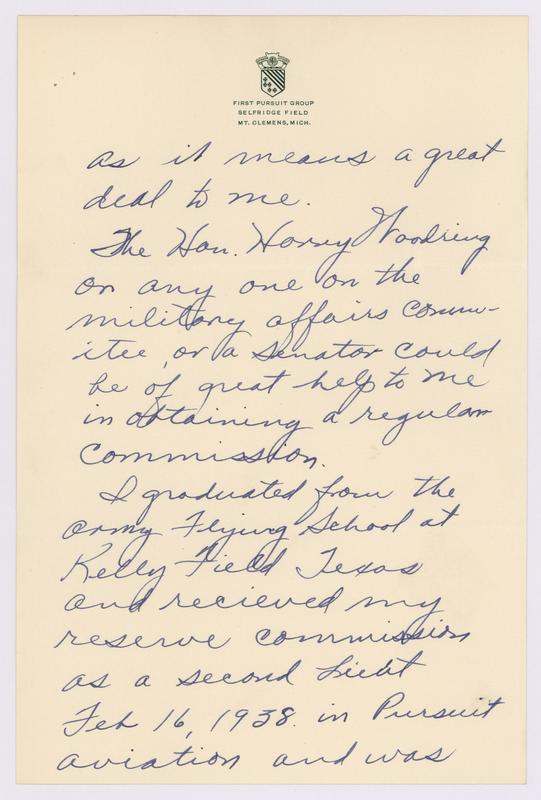 FIRST PURSUIT GROUP
SELFRIDGE FIELD
MT. CLEMENS, MICH.
as it means a great
deal to me.
The Hon. Harry Woodring
or any one on the
military affairs comm-
itee, or a Senator could
be of great help to me
in obtaining a regular
commission.
I graduated from the
army Flying School at
Kelly Field Texas
and recieved my
reserve commission
as a second Lieut
Feb 16, 1938. in Pursuit
aviation and was